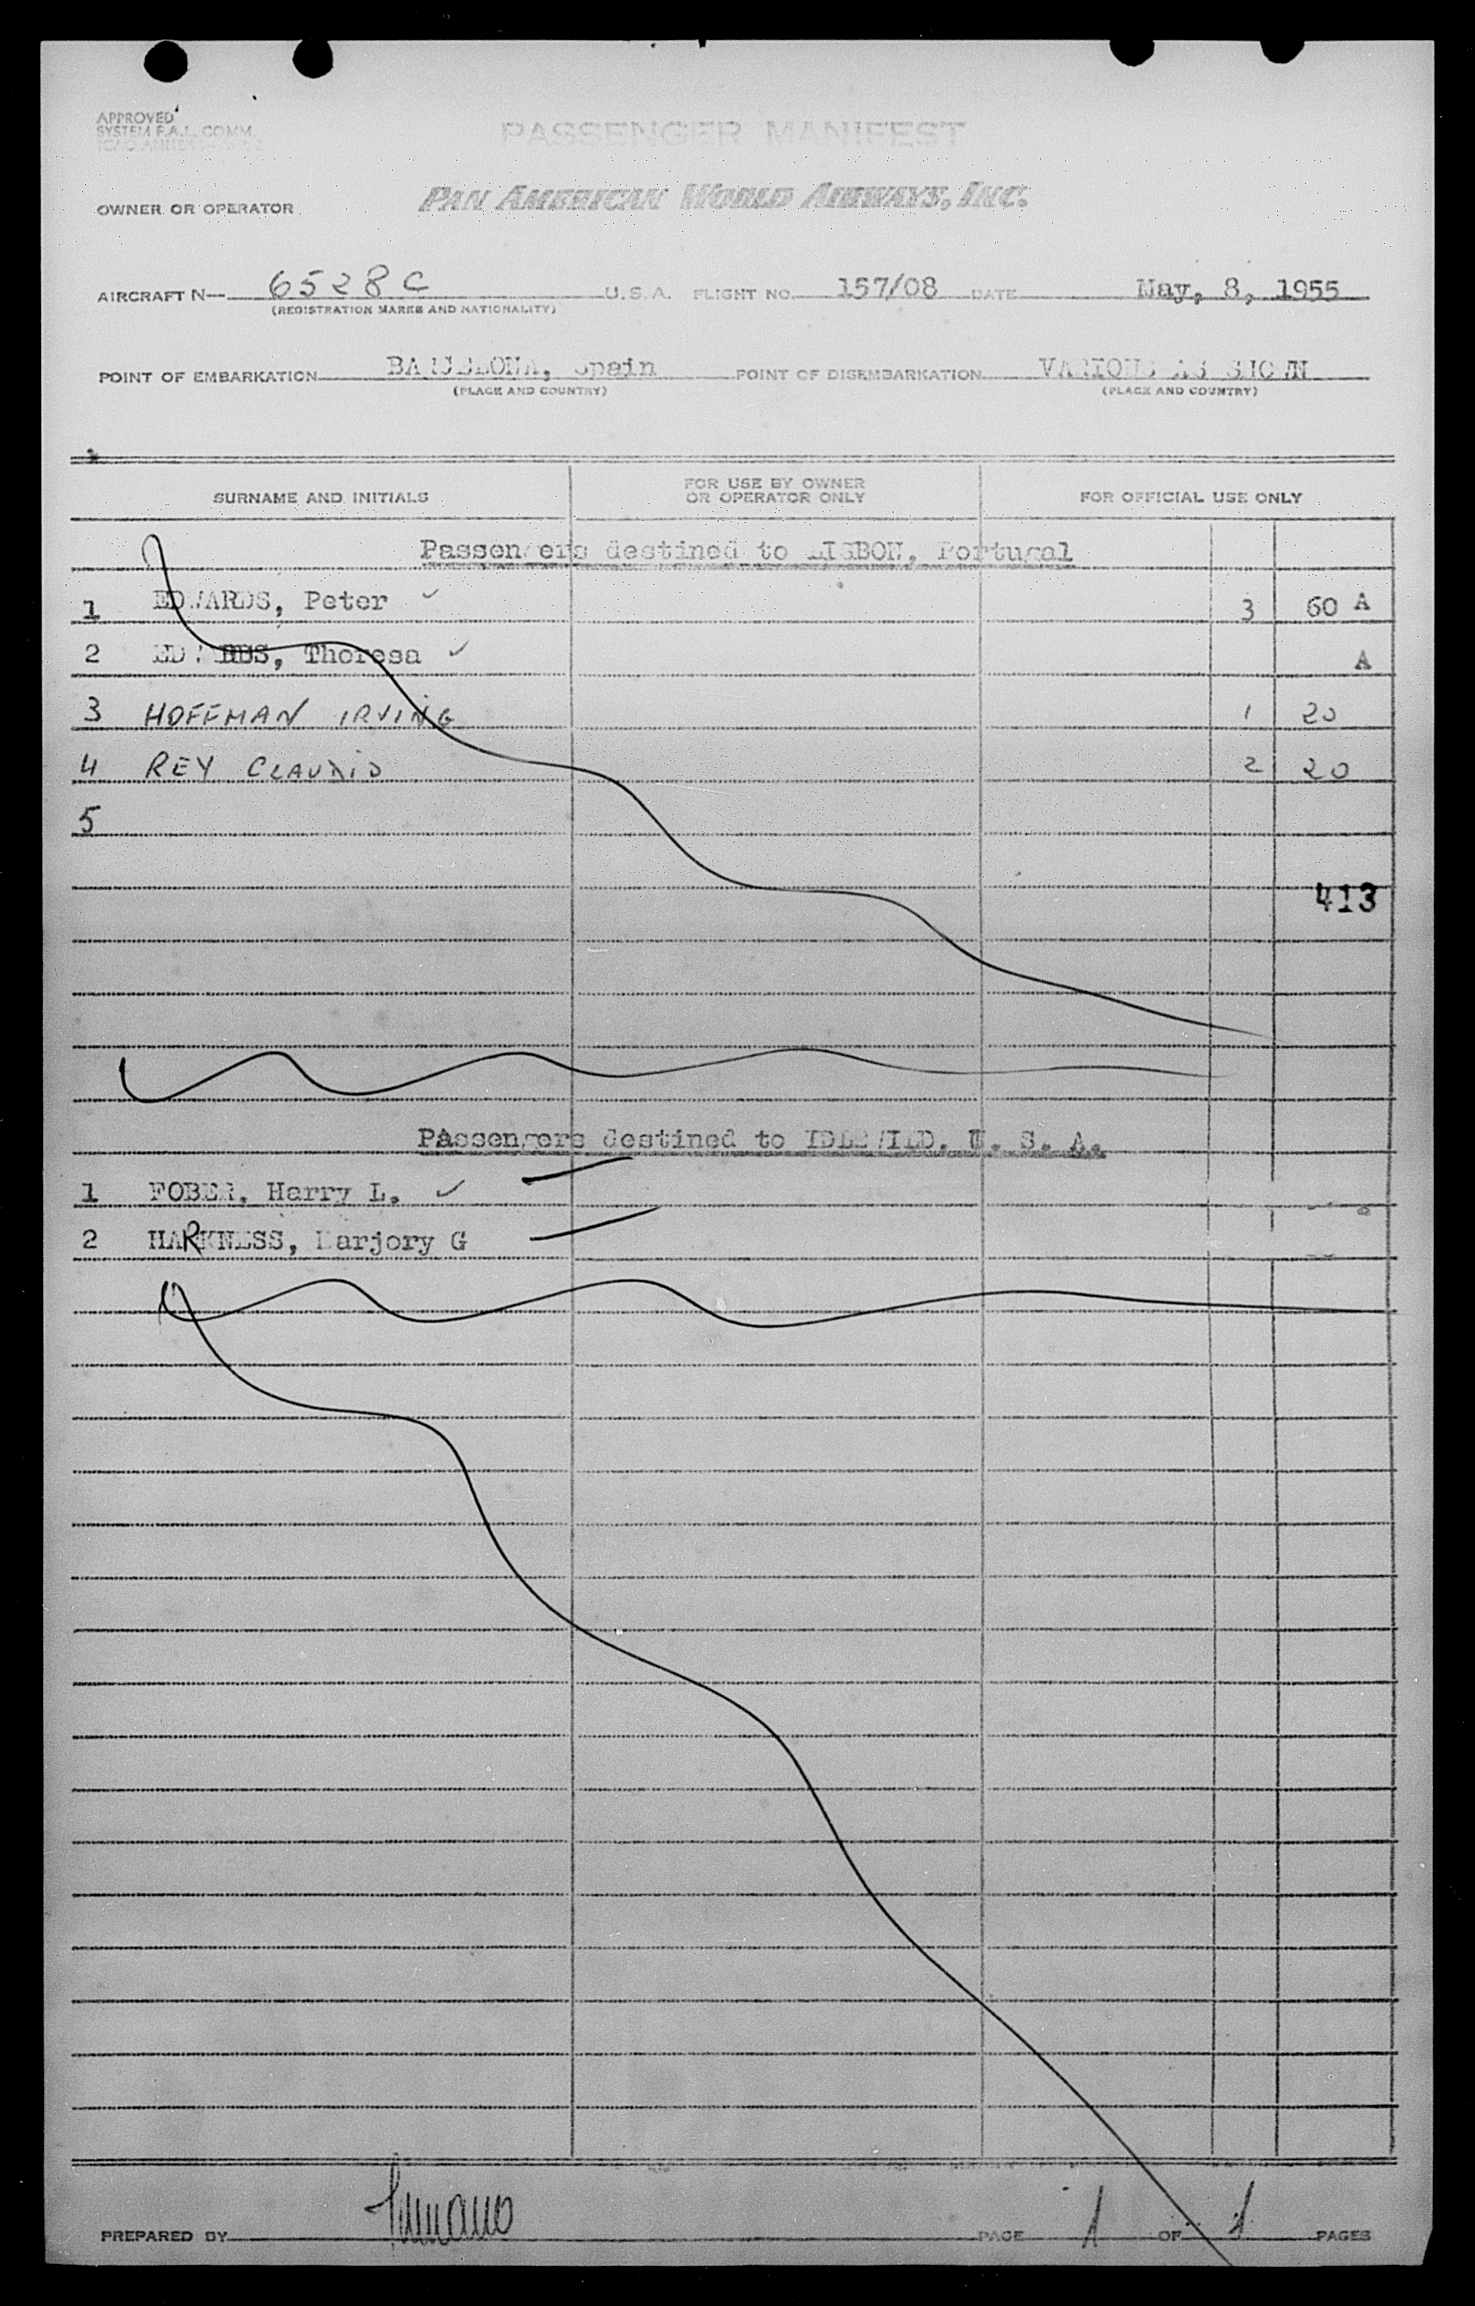 APPROVED
SYSTEM F.A.L. COMM.
PASSENGER MANIFEST
OWNER OR OPERATOR PAN AMERICAN WORLD AIRWAYS, INC.
AIRCRAFT N— 6528C U.S.A. FLIGHT NO. 157/08 DATE May, 8, 1955
(REGISTRATION MARKS AND NATIONALITY)
POINT OF EMBARKATION BARCELONA, Spain POINT OF DISEMBARKATION VARIOUS AS SHOWN
(PLACE AND COUNTRY) (PLACE AND COUNTRY)
SURNAME AND INITIALS FOR USE BY OWNER OR OPERATOR ONLY FOR OFFICIAL USE ONLY
Passengers destined to LISBON, Portugal
1 EDWARDS, Peter 3 60 A
2 EDWARDS, Theresa A
3 HOFFMAN IRVING 1 20
4 REY CLAUDIO 2 20
5
413
Passengers destined to IDLEWILD, U. S. A.
1 FOBER, Harry L.
2 HARKNESS, Marjory G
PREPARED BY PAGE 1 OF 1 PAGES